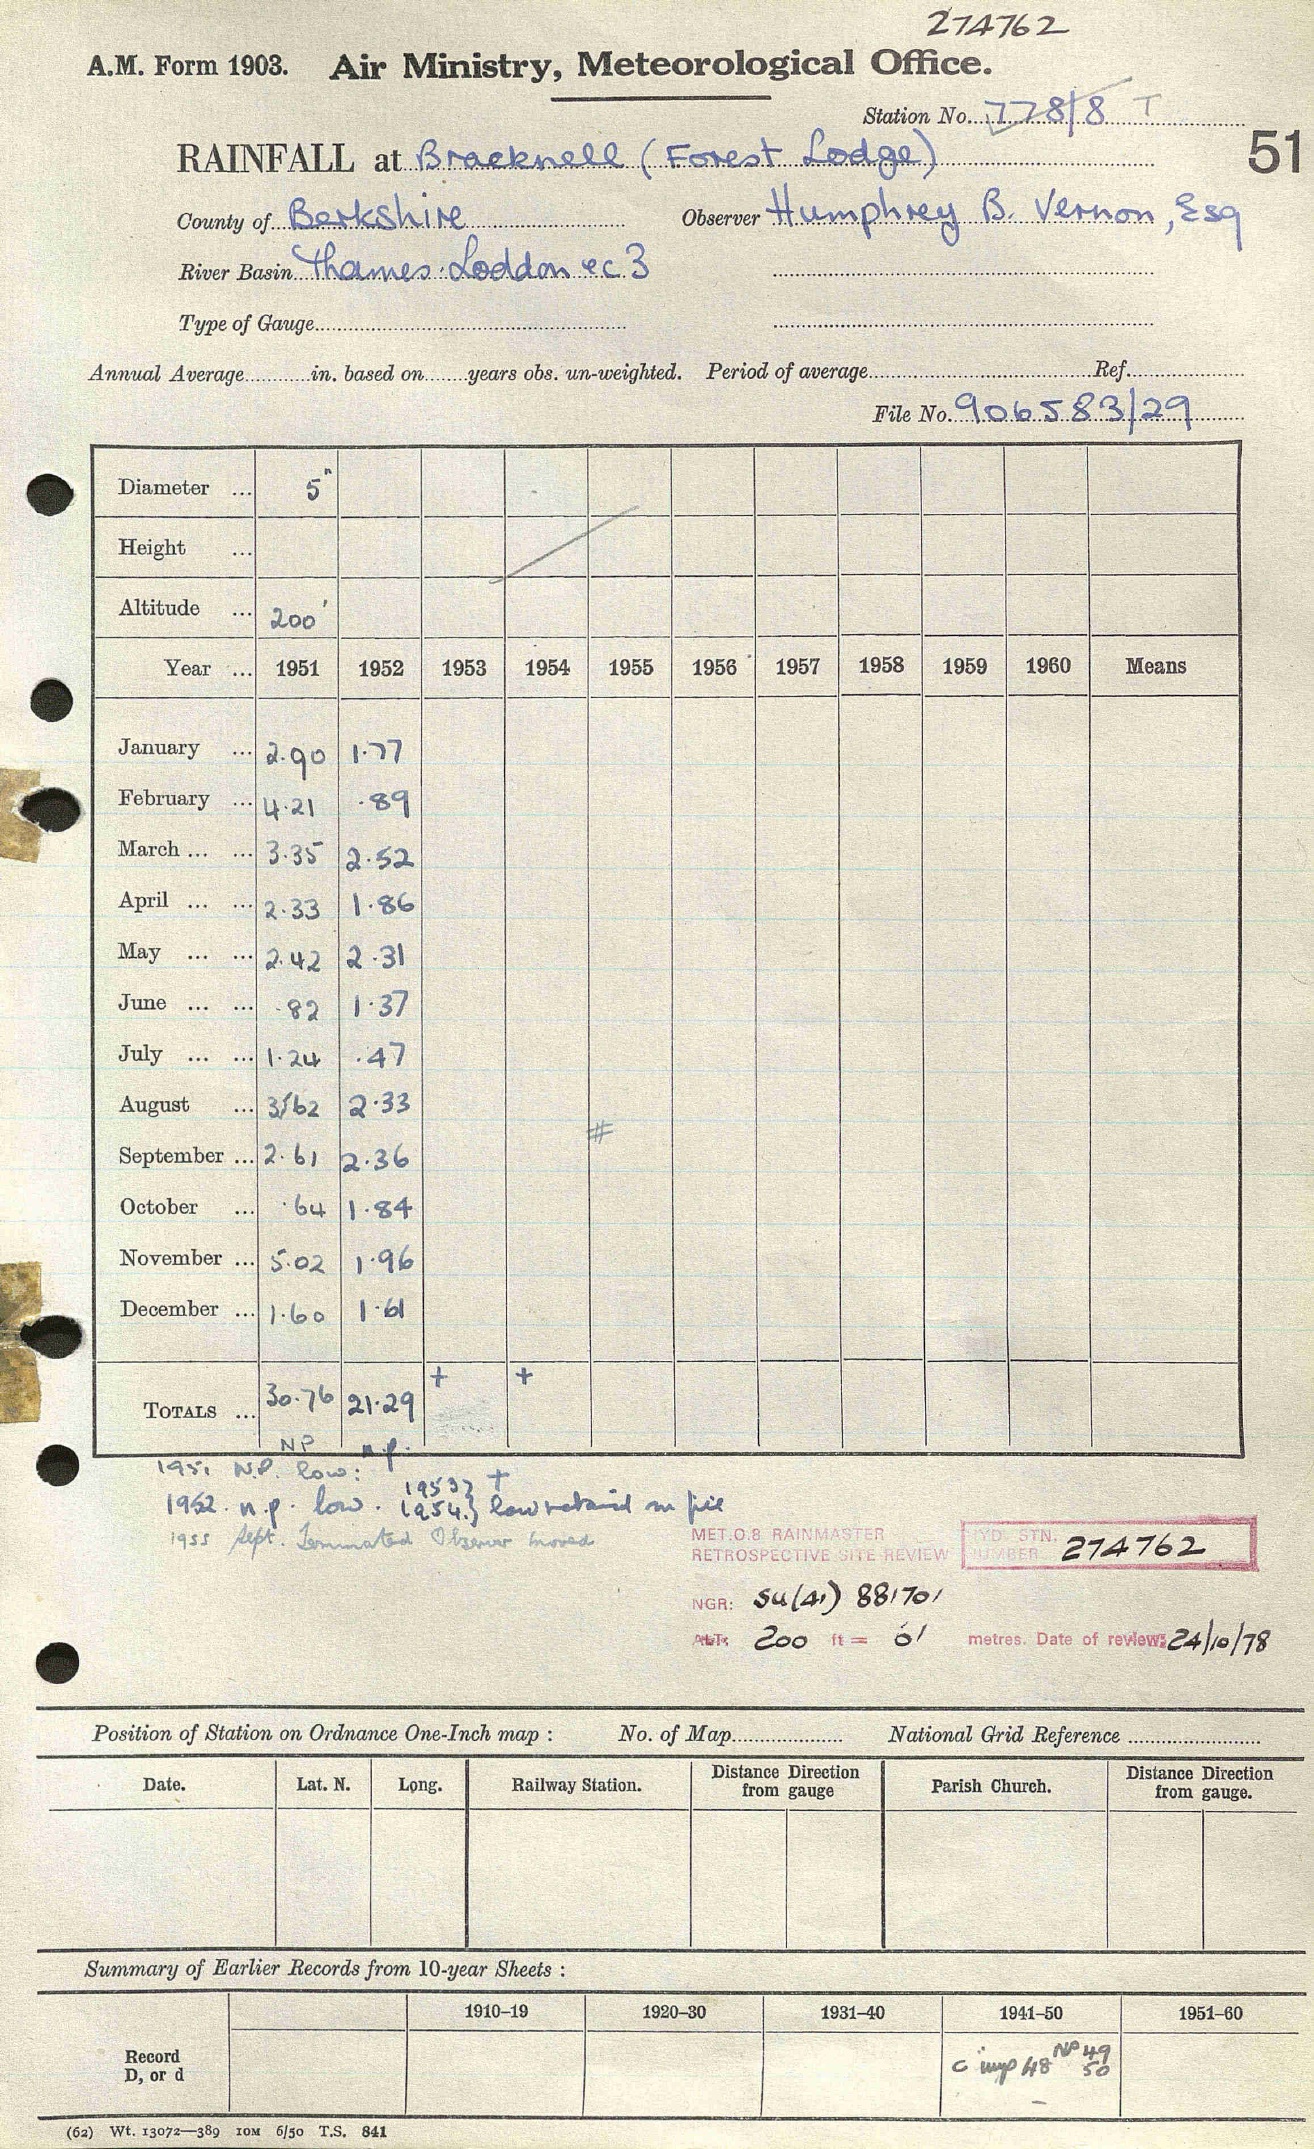 274762
A.M. Form 1903. Air Ministry, Meteorological Office.
Station No. 778/8 T
RAINFALL at Bracknell (Forest Lodge) 51
County of Berkshire Observer Humphrey B. Vernon, Esq
River Basin Thames. Loddon ec 3
Type of Gauge
Annual Average in. based on years obs. un-weighted. Period of average Ref.
File No. 906583/29
Diameter ... 5"
Height ...
Altitude ... 200'
Year ... 1951 1952 1953 1954 1955 1956 1957 1958 1959 1960 Means
January ... 2.90 1.77
February ... 4.21 .89
March ... ... 3.35 2.52
April ... ... 2.33 1.86
May ... ... 2.42 2.31
June ... ... .82 1.37
July ... ... 1.24 .47
August ... 3/62 2.33
September ... 2.61 2.36
October ... .64 1.84
November ... 5.02 1.96
December ... 1.60 1.61
TOTALS ... 30.76 21.29 + +
NP n.p.
1951 N.P. low: 1953} +
1952. n.p. low. 1954.} low retained on file
1955 Sept. Terminated Observer moved
MET.O.8 RAINMASTER
RETROSPECTIVE SITE REVIEW HYD. STN. NUMBER 274762
NGR: SU(41) 881701
ALT: 200 ft = 61 metres. Date of review: 24/10/78
Position of Station on Ordnance One-Inch map : No. of Map National Grid Reference
Date. Lat. N. Long. Railway Station. Distance Direction from gauge Parish Church. Distance Direction from gauge.
Summary of Earlier Records from 10-year Sheets :
1910–19 1920–30 1931–40 1941–50 1951–60
Record
D, or d
c imp 48 NP 49
50
(62) Wt. 13072—389 10M 6/50 T.S. 841